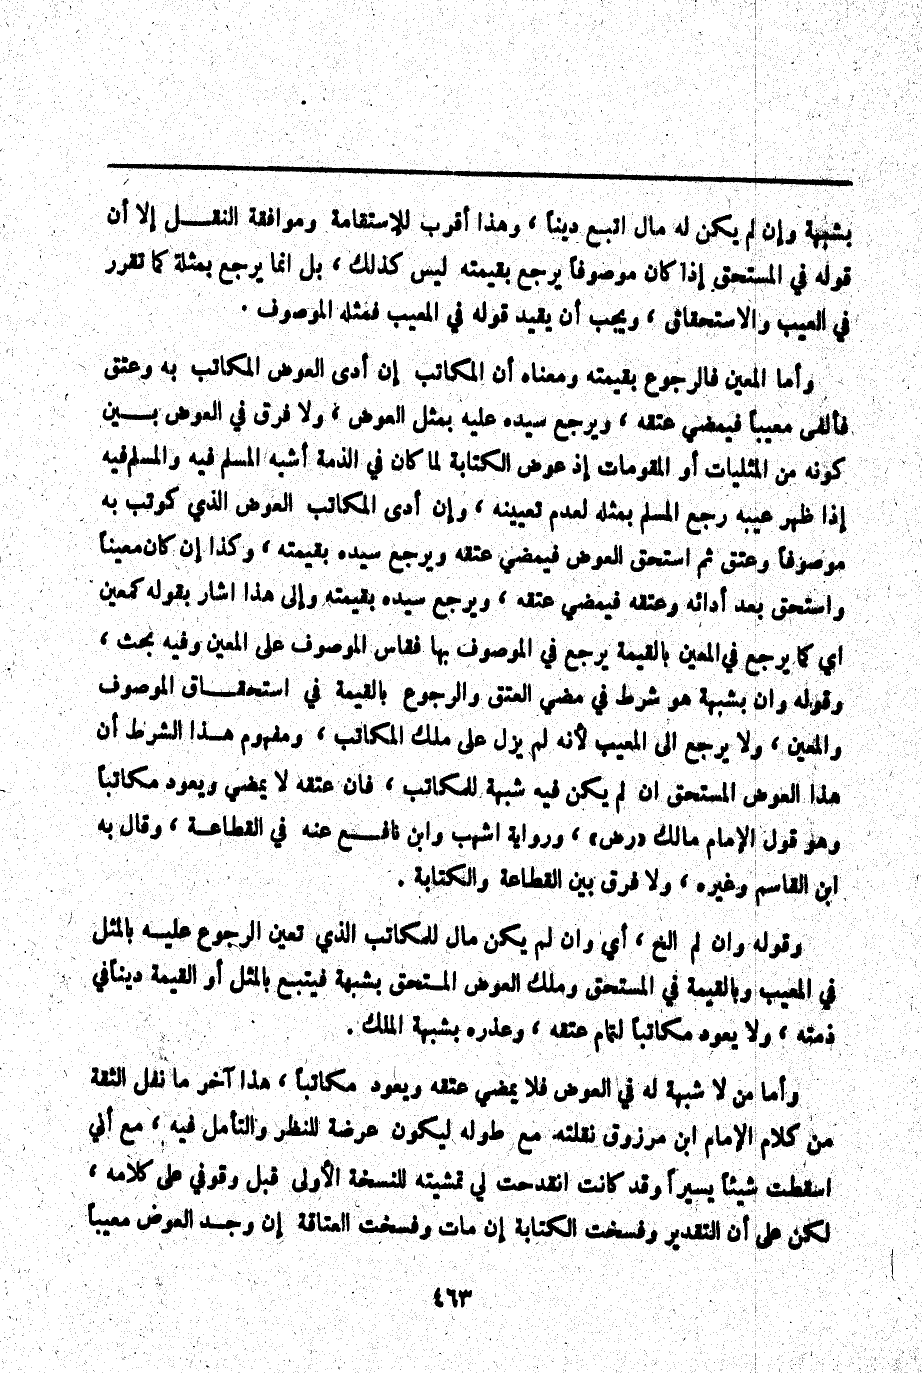 بشبهة وإن لم يكن له مال اتبع ديناً ، وهذا أقرب للإستقامة وموافقة النقــل إلا أن
قوله في المستحق إذا كان موصوفاً يرجع بقيمته ليس كذلك ، بل انما يرجع بمثلة كما تقرر
في العيب والاستحقاق ، ويجب أن يقيد قوله في المعيب فمثله الموصوف .
وأما المعين فالرجوع بقيمته ومعناه أن المكاتب إن أدى العوض المكاتب به وعتق
فألفى معيباً فيمضي عتقه ، ويرجع سيده عليه بمثل العوض ، ولا فرق في العوض بــين
كونه من المثليات أو المقومات إذ عوض الكتابة لما كان في الذمة أشبه المسلم فيه والمسلم فيه
إذا ظهر عيبه رجع المسلم بمثله لعدم تعيينه ، وإن أدى المكاتب العوض الذي كوتب به
موصوفاً وعتق ثم استحق العوض فيمضي عتقه ويرجع سيده بقيمته ، وكذا إن كان معيناً
واستحق بعد أدائه وعتقه فيمضي عتقه ، ويرجع سيده بقيمته وإلى هذا اشار بقوله كمعين
اي كما يرجع في المعين بالقيمة يرجع في الموصوف بها فقاس الموصوف على المعين وفيه بحث ،
وقوله وان بشبهة هو شرط في مضي العتق والرجوع بالقيمة في استحقــاق الموصوف
والمعين ، ولا يرجع الى المعيب لأنه لم يزل على ملك المكاتب ، ومفهوم هــذا الشرط أن
هذا العوض المستحق ان لم يكن فيه شبهة للمكاتب ، فان عتقه لا يمضي ويعود مكاتباً
وهو قول الإمام مالك «رض» ، ورواية اشهب وابن نافــع عنه في القطاعــة ، وقال به
ابن القاسم وغيره ، ولا فرق بين القطاعة والكتابة .
وقوله وان لم الخ ، أي وان لم يكن مال للمكاتب الذي تعين الرجوع عليــه بالمثل
في المعيب وبالقيمة في المستحق وملك العوض المستحق بشبهة فيتبع بالمثل أو القيمة ديناً في
ذمته ، ولا يعود مكاتباً لتمام عتقه ، وعذره بشبهة الملك .
وأما من لا شبهة له في العوض فلا يمضي عتقه ويعود مكاتباً ، هذا آخر ما نقل الثقة
من كلام الإمام ابن مرزوق نقلته مع طوله ليكون عرضة للنظر والتأمل فيه ، مع أني
اسقطت شيئاً يسيراً وقد كانت انقدحت لي تمشيته للنسخة الأولى قبل وقوفي على كلامه ،
لكن على أن التقدير وفسخت الكتابة إن مات وفسخت العتاقة إن وجــد العوض معيباً
٤٦٣